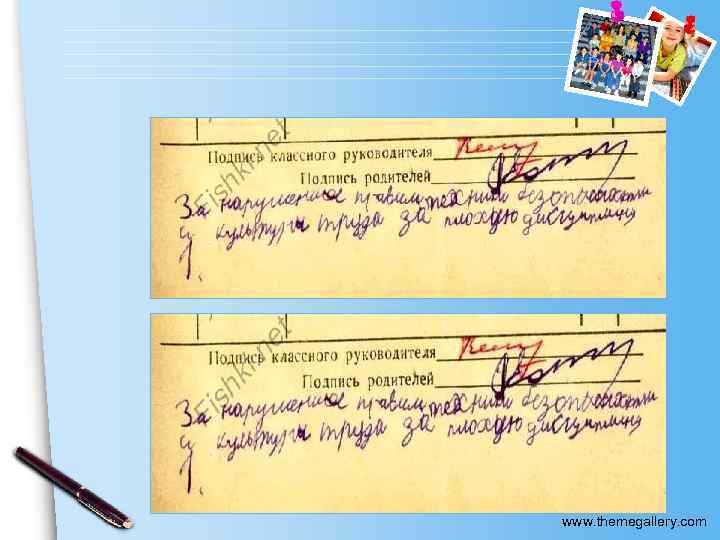 Подпись классного руководителя
Подпись родителей
За нарушение правил техники безопасности
и культуры труда за плохую дисциплину
1.
Fishki.net
Подпись классного руководителя
Подпись родителей
За нарушение правил техники безопасности
и культуры труда за плохую дисциплину
1.
Fishki.net
www.themegallery.com